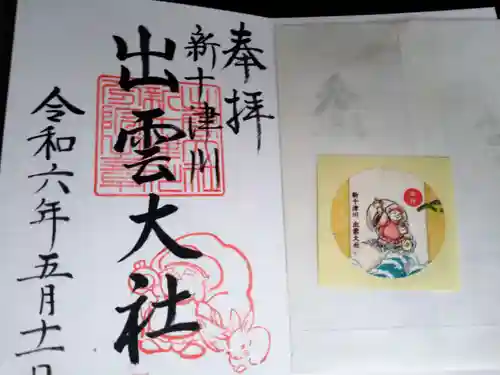 奉拝
新十津川
出雲大社
令和六年五月十一日
新十津川 出雲大社